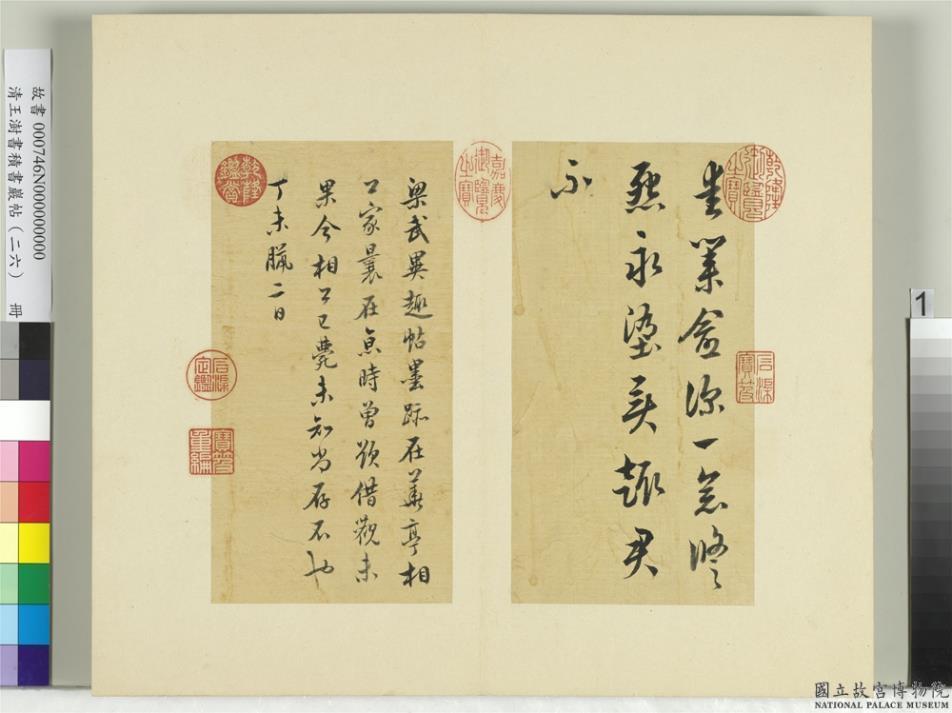 乾隆御覽之寶
愛業愈深一念脩
怨永墮異趣君
不
石渠寶笈
嘉慶御覽之寶
梁武異趣帖墨跡在華亭相
公家曩在京時曾欲借觀未
果今相公已薨未知尚存否也
丁未臘二日
乾隆鑑賞
石渠定鑑
寶笈重編
故書 000746N000000000
清王澍書積書巖帖（二六） 冊
1
國立故宮博物院
NATIONAL PALACE MUSEUM